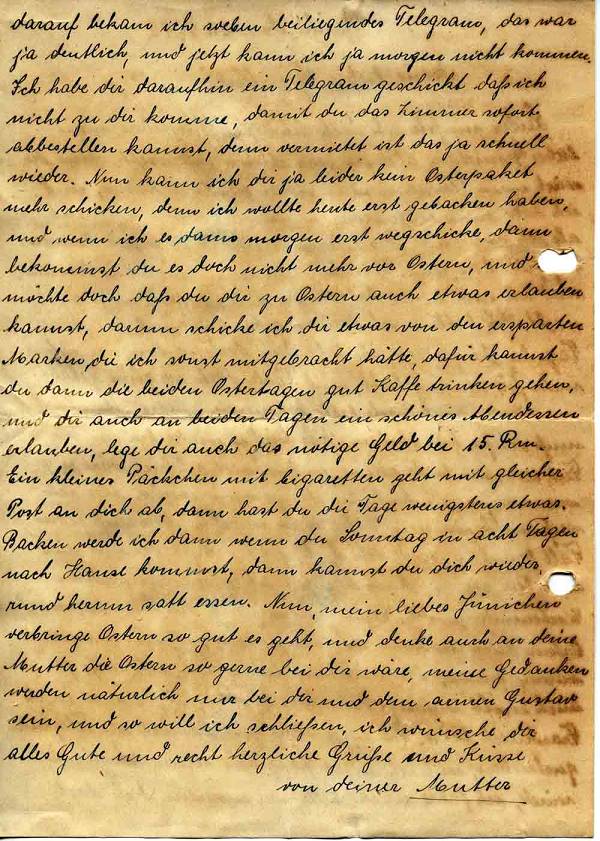 darauf bekam ich soeben beiliegendes Telegram, das war
ja deutlich, und jetzt kann ich ja morgen nicht kommen.
Ich habe dir daraufhin ein Telegram geschickt daß ich
nicht zu dir komme, damit du das Zimmer sofort
abbestellen kannst, denn vermietet ist das ja schnell
wieder. Nun kann ich dir ja leider kein Osterpaket
mehr schicken, denn ich wollte heute erst gebacken haben,
und wenn ich es dans morgen erst wegschicke, dann
bekommst du es doch nicht mehr vor Ostern, und
möchte doch daß du dir zu Ostern auch etwas erlauben
kannst, darum schicke ich dir etwas von den ersparten
Marken, die ich sonst mitgebracht hätte, dafür kannst
du dann die beiden Ostertagen gut Kaffe trinken gehen,
und dir auch an beiden Tagen ein schönes Abendessen
erlauben, lege dir auch das nötige Geld bei 15. Rm.
Ein kleines Päckchen mit Cigaretten geht mit gleicher
Post an dich ab, dann hast du die Tage wenigstens etwas.
Backen werde ich dann wenn du Sonntag in acht Tagen
nach Hause kommst, dann kannst du dich wieder
rund herum satt essen. Nun, mein liebes Jünichen
verbringe Ostern so gut es geht, und denke auch an deine
Mutter die Ostern so gerne bei dir wäre, meine Gedanken
werden natürlich nur bei dir und dem armen Gustav
sein, und so will ich schließen, ich wünsche dir
alles Gute und recht herzliche Grüße und Küsse
von deiner Mutter